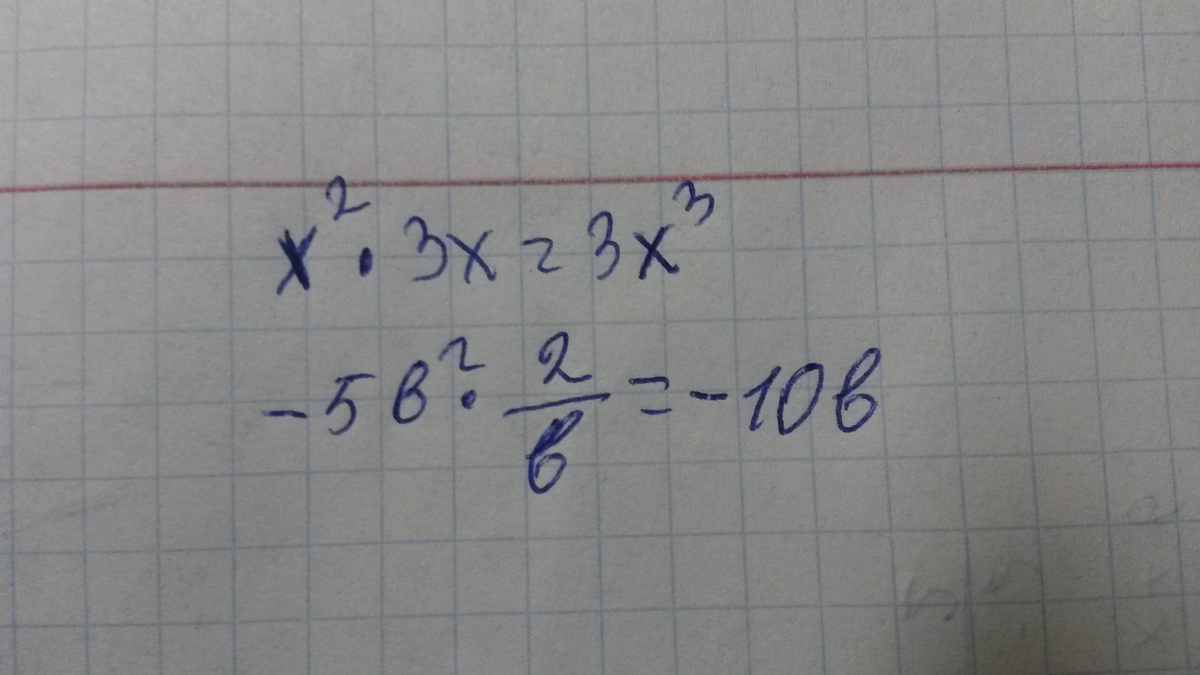 x² · 3x = 3x³
-5в² · 2/в = -10в